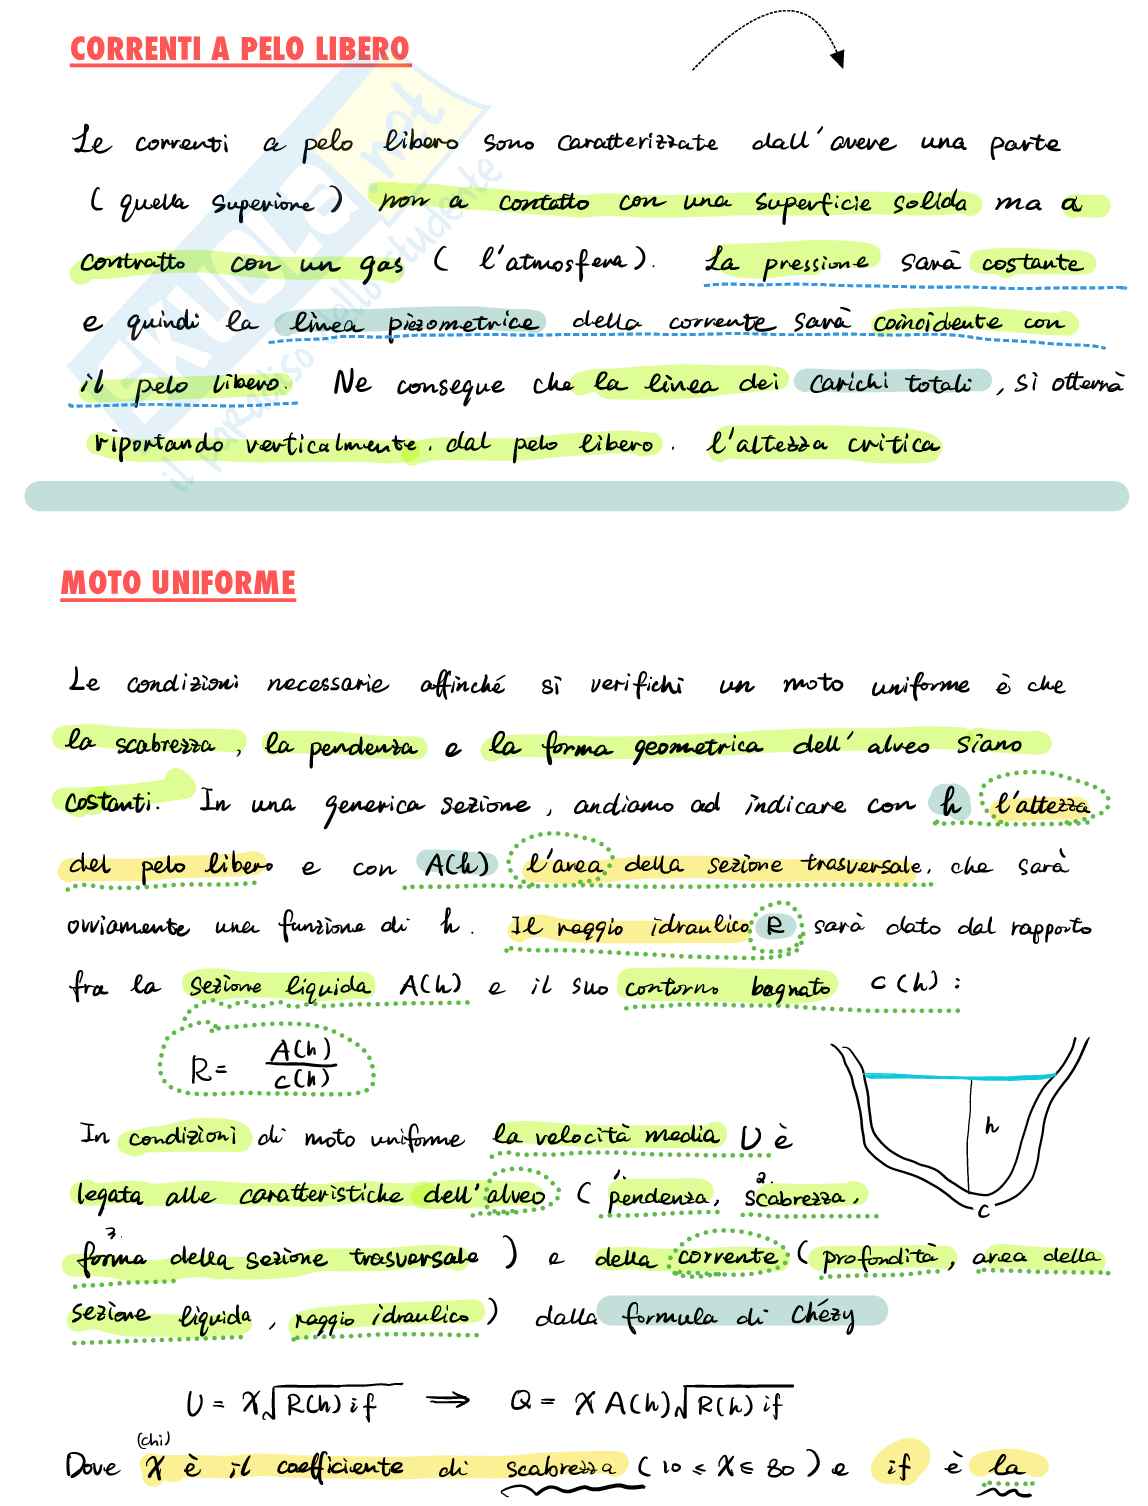 CORRENTI A PELO LIBERO
Le correnti a pelo libero sono caratterizzate dall'avere una parte
(quella superiore) non a contatto con una superficie solida ma a
contratto con un gas (l'atmosfera). La pressione sarà costante
e quindi la linea piezometrica della corrente sarà coincidente con
il pelo libero. Ne consegue che la linea dei carichi totali, si otterrà
riportando verticalmente, dal pelo libero, l'altezza critica
SKUOLA.net
il paradiso dello studente
MOTO UNIFORME
Le condizioni necessarie affinché si verifichi un moto uniforme è che
la scabrezza, la pendenza e la forma geometrica dell'alveo siano
costanti. In una generica sezione, andiamo ad indicare con h l'altezza
del pelo libero e con A(h) l'area della sezione trasversale, che sarà
ovviamente una funzione di h. Il raggio idraulico R sarà dato dal rapporto
fra la sezione liquida A(h) e il suo contorno bagnato c(h):
R = A(h)/c(h)
h
c
In condizioni di moto uniforme la velocità media U è
legata alle caratteristiche dell'alveo (1. pendenza, 2. scabrezza,
3. forma della sezione trasversale) e della corrente (profondità, area della
sezione liquida, raggio idraulico) dalla formula di Chézy
U = χ√R(h) if ⟹ Q = χ A(h)√R(h) if
(chi)
Dove χ è il coefficiente di scabrezza (10 ≤ χ ≤ 80) e if è la